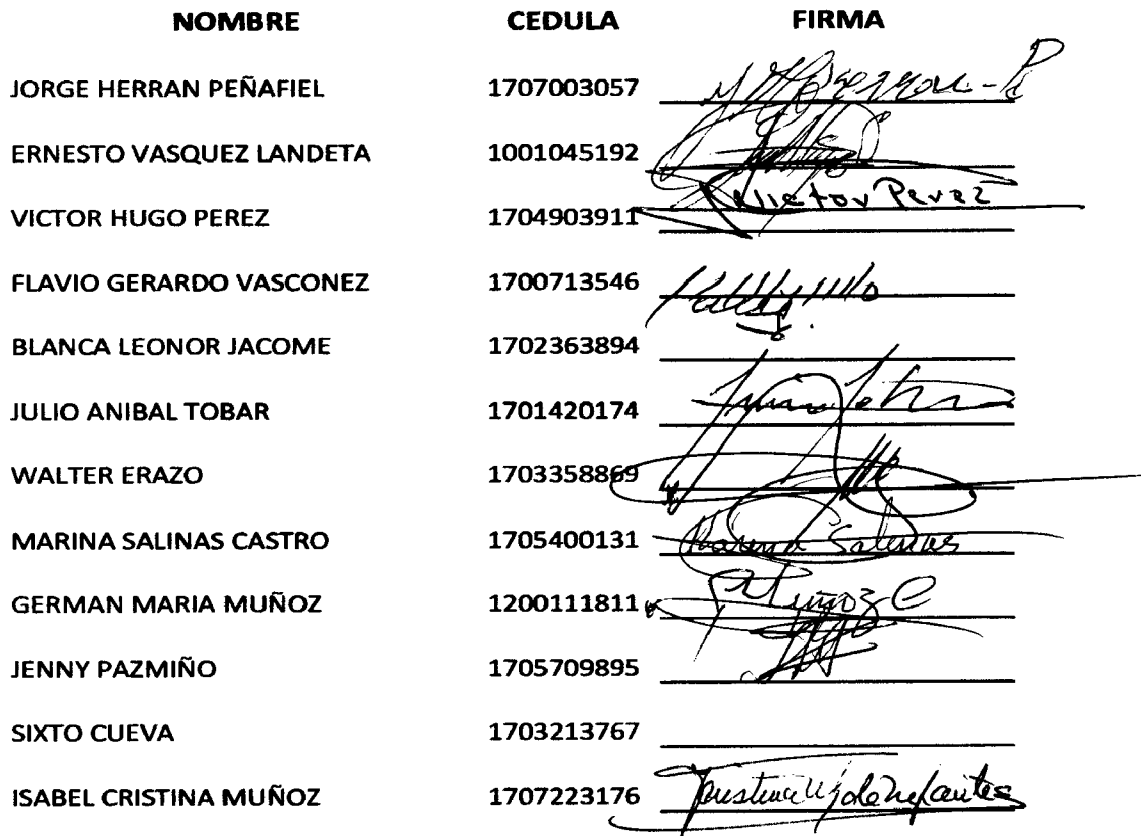 NOMBRE CEDULA FIRMA
JORGE HERRAN PEÑAFIEL 1707003057
ERNESTO VASQUEZ LANDETA 1001045192
VICTOR HUGO PEREZ 1704903911 Victor Perez
FLAVIO GERARDO VASCONEZ 1700713546
BLANCA LEONOR JACOME 1702363894
JULIO ANIBAL TOBAR 1701420174
WALTER ERAZO 1703358869
MARINA SALINAS CASTRO 1705400131 Marina Salinas
GERMAN MARIA MUÑOZ 1200111811 Muñoz C
JENNY PAZMIÑO 1705709895
SIXTO CUEVA 1703213767
ISABEL CRISTINA MUÑOZ 1707223176